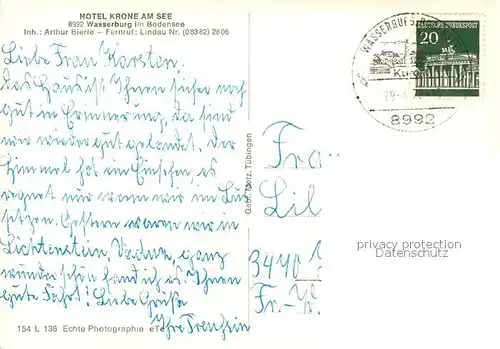 HOTEL KRONE AM SEE
8992 Wasserburg im Bodensee
Inh.: Arthur Bierle – Fernruf: Lindau Nr. (08382) 2606
Liebe Frau Karsten,
das Haus ist Ihnen sicher noch
gut in Erinnerung, da sind
wir wieder gut gelandet. Der
Himmel hat ein Einsehen, es
regnet nur wenn wir im
sitzen. Gestern waren wir in
Lichtenstein, Vaduz, ganz
wunderschön fand ich es. Ihnen
gute Fahrt! Liebe Grüße
Ihre
154 L 136 Echte Photographie
Gebr. Metz, Tübingen
WASSERBURG
Kurort
29
8992
DEUTSCHE BUNDESPOST
20
Fra
Lil
3440
Fr.-
privacy protection
Datenschutz